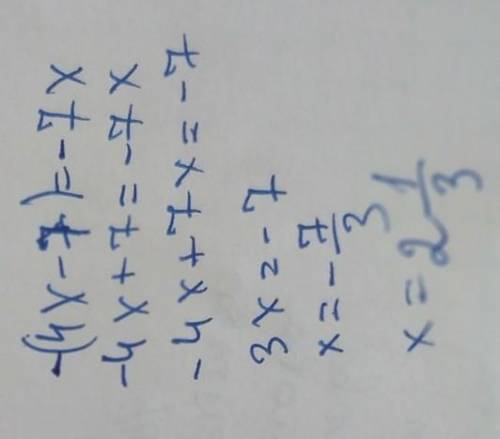 -(4x-7)=-7x
-4x+7=-7x
-4x+7x=-7
3x=-7
x=-7/3
x=2 1/3